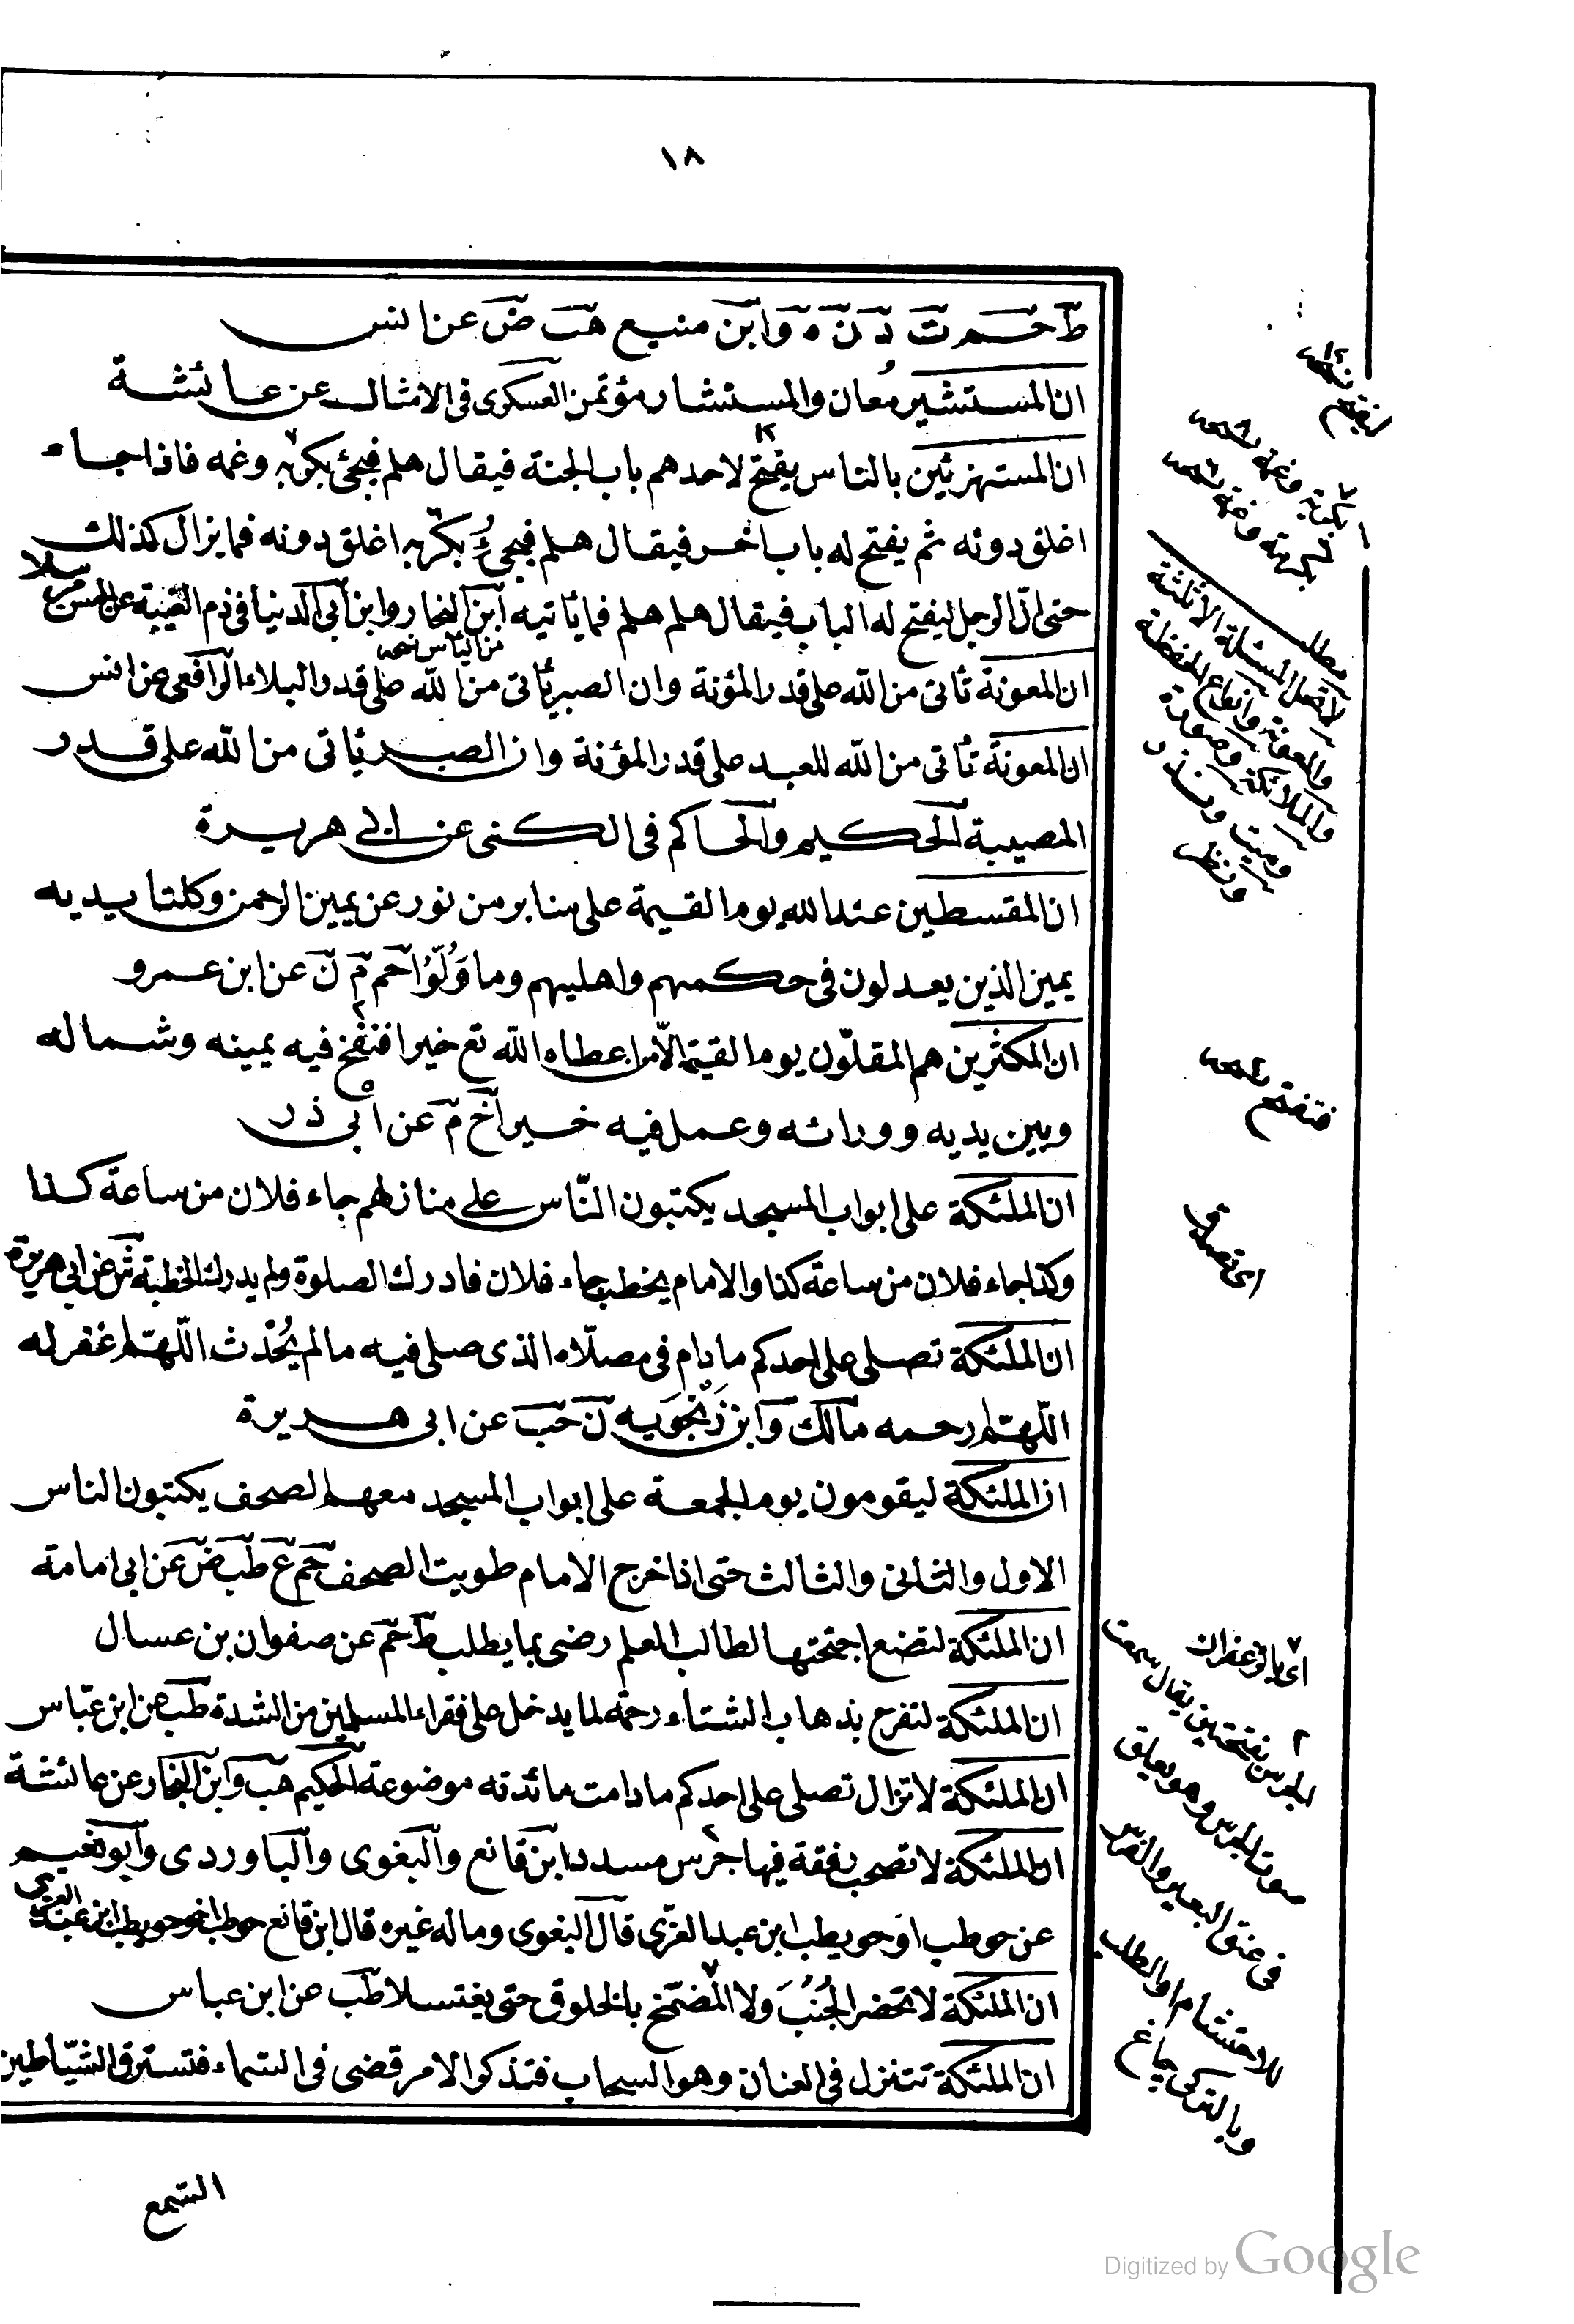 ١٨
ط حم ت د ن ه وابن منيع هب ض عن انس
ان المستشير مُعان والمستشار مؤتمن العسكرى فى الامثال عن عائشة
ان المستهزئين بالناس يفتح لاحدهم باب الجنة فيقال هلم فيجئ بكربه وغمه فاذا جاء
اغلق دونه ثم يفتح له باب اخر فيقال هلم فيجئُ بكربه اغلق دونه فما يزال كذلك
حتى انّ الرجل ليفتح له الباب فيقال هلم هلم فما ياتيه ابن النجار وابن ابى الدنيا فى ذم الغيبة عن الحسن مرسلا
من الياس نسخه
ان المعونة تأتى من الله على قدر المؤنة وان الصبر يأتى من الله على قدر البلاء الرافعى عن انس
ان المعونة تأتى من الله للعبد على قدر المؤنة وان الصبر يأتى من الله على قدر
المصيبة الحكيم والحاكم فى الكنى عن ابى هريرة
ان المقسطين عند الله يوم القيمة على منابر من نور عن يمين الرحمن وكلتا يديه
يمين الذين يعدلون فى حكمهم واهليهم وما وَلُوّا حم م ن عن ابن عمرو
ان المكثرين هم المقلّون يوم القيمة الّا من اعطاه الله تع خيرا فنفخ فيه يمينه وشماله
وبين يديه وورائه وعمل فيه خيرا خ م عن ابى ذر
ان الملئكة على ابواب المسجد يكتبون النّاس على منازلهم جاء فلان من ساعة كذا
وكذا جاء فلان من ساعة كذا والامام يخطب جاء فلان فادرك الصلوة ولم يدرك الخطبة ش عن ابى هريرة
ان الملئكة تصلى على احدكم مادام فى مصلّاه الذى صلى فيه مالم يُحْدث اللّهمّ اغفر له
اللّهمّ ارحمه مالك وابن زَنْجَويه ن حب عن ابى هريرة
ان الملئكة ليقومون يوم الجمعة على ابواب المسجد معهم الصحف يكتبون الناس
الاول والثانى والثالث حتى اذا خرج الامام طويت الصحف حم ع طب ض عن ابى امامة
ان الملئكة لتضع اجنحتها لطالب العلم رضى بما يطلب ط حم عن صفوان بن عسال
ان الملئكة لتفرح بذهاب الشتاء رحمة لما يدخل على فقراء المسلمين من الشدة طب عن ابن عبّاس
ان الملئكة لا تزال تصلى على احدكم مادامت مائدته موضوعة الحكيم هب وابن النجار عن عائشة
ان الملئكة لا تصحب رفقة فيها جرس مسدد ابن قانع والبغوى والباوردى وابو نعيم
عن حوطب او حويطب ابن عبد العزى قال البغوى وماله غيره قال ابن قانع حوطب اخو حويطب ابن عبد العزى
ان الملئكة لا تحضر الجُنُبَ ولا المُضمّخ بالخلوق حتى يغتسلا طب عن ابن عباس
ان الملئكة تتنزل فى العنان وهو السحاب فتذكر الامر قضى فى السّماء فتسترق الشّياطين
السّمع
بكربته وغمته نسخه
مطلب
لا تحل المسئلة الا ثلثة
والمعونة وانواع الحفظة
والملائكة وصعودة
وميت
فتنفخ نسخه
اى تصدق
اى بالزعفران
الجرس بفتحتين يقال سمعت
صوت الجرس وهو يعلق
فى عنق البعير والفرس
وبالتركى چاغ
Digitized by Google